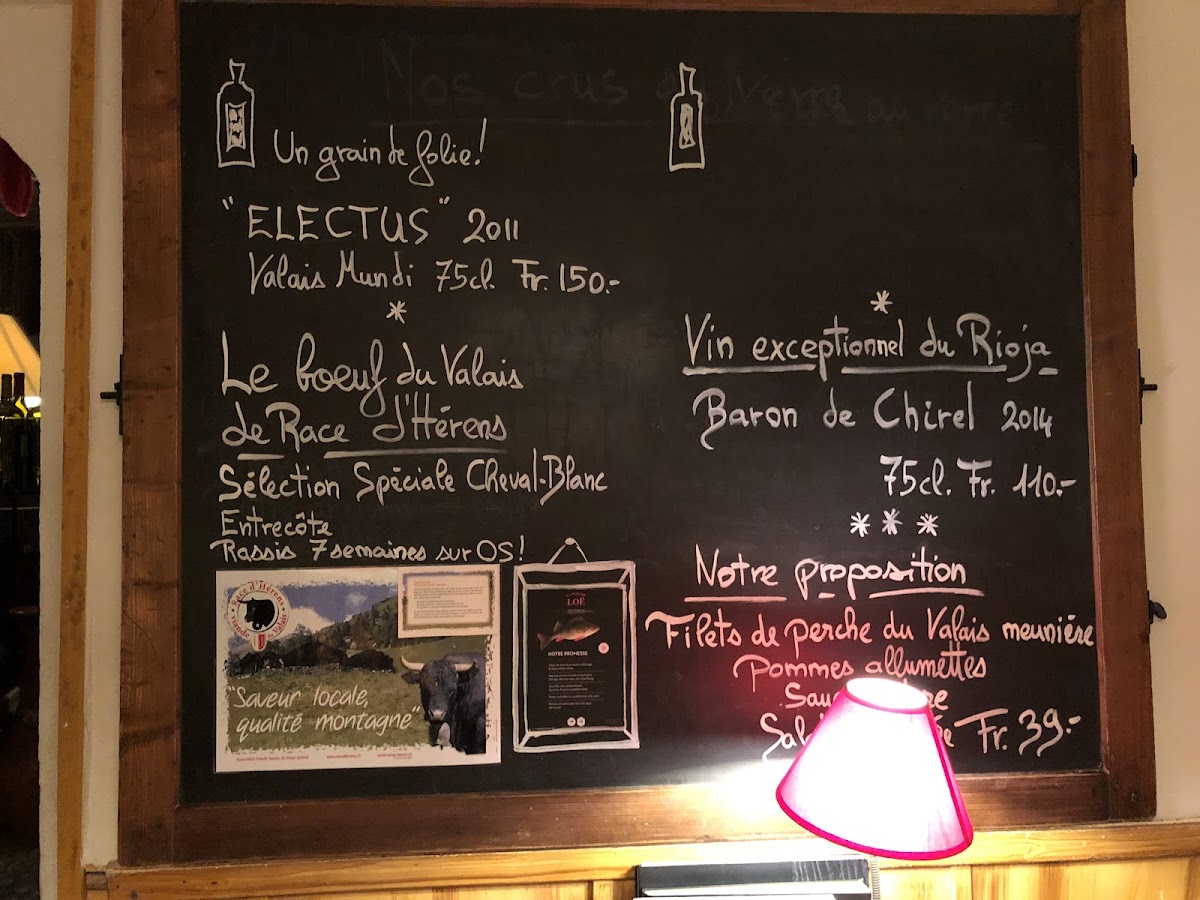 Nos crus
Un grain de folie!
"ELECTUS" 2011
Valais Mundi 75cl. Fr. 150.-
*
Le boeuf du Valais
de Race d'Hérens
Sélection Spéciale Cheval-Blanc
Entrecôte
Rassis 7 semaines sur OS!
Race d'Hérens
viande Valais
"Saveur locale,
qualité montagne"
LOË
NOTRE PROMESSE
*
Vin exceptionnel du Rioja
Baron de Chirel 2014
75cl. Fr. 110.-
***
Notre proposition
Filets de perche du Valais meunière
Pommes allumettes
Fr. 39.-